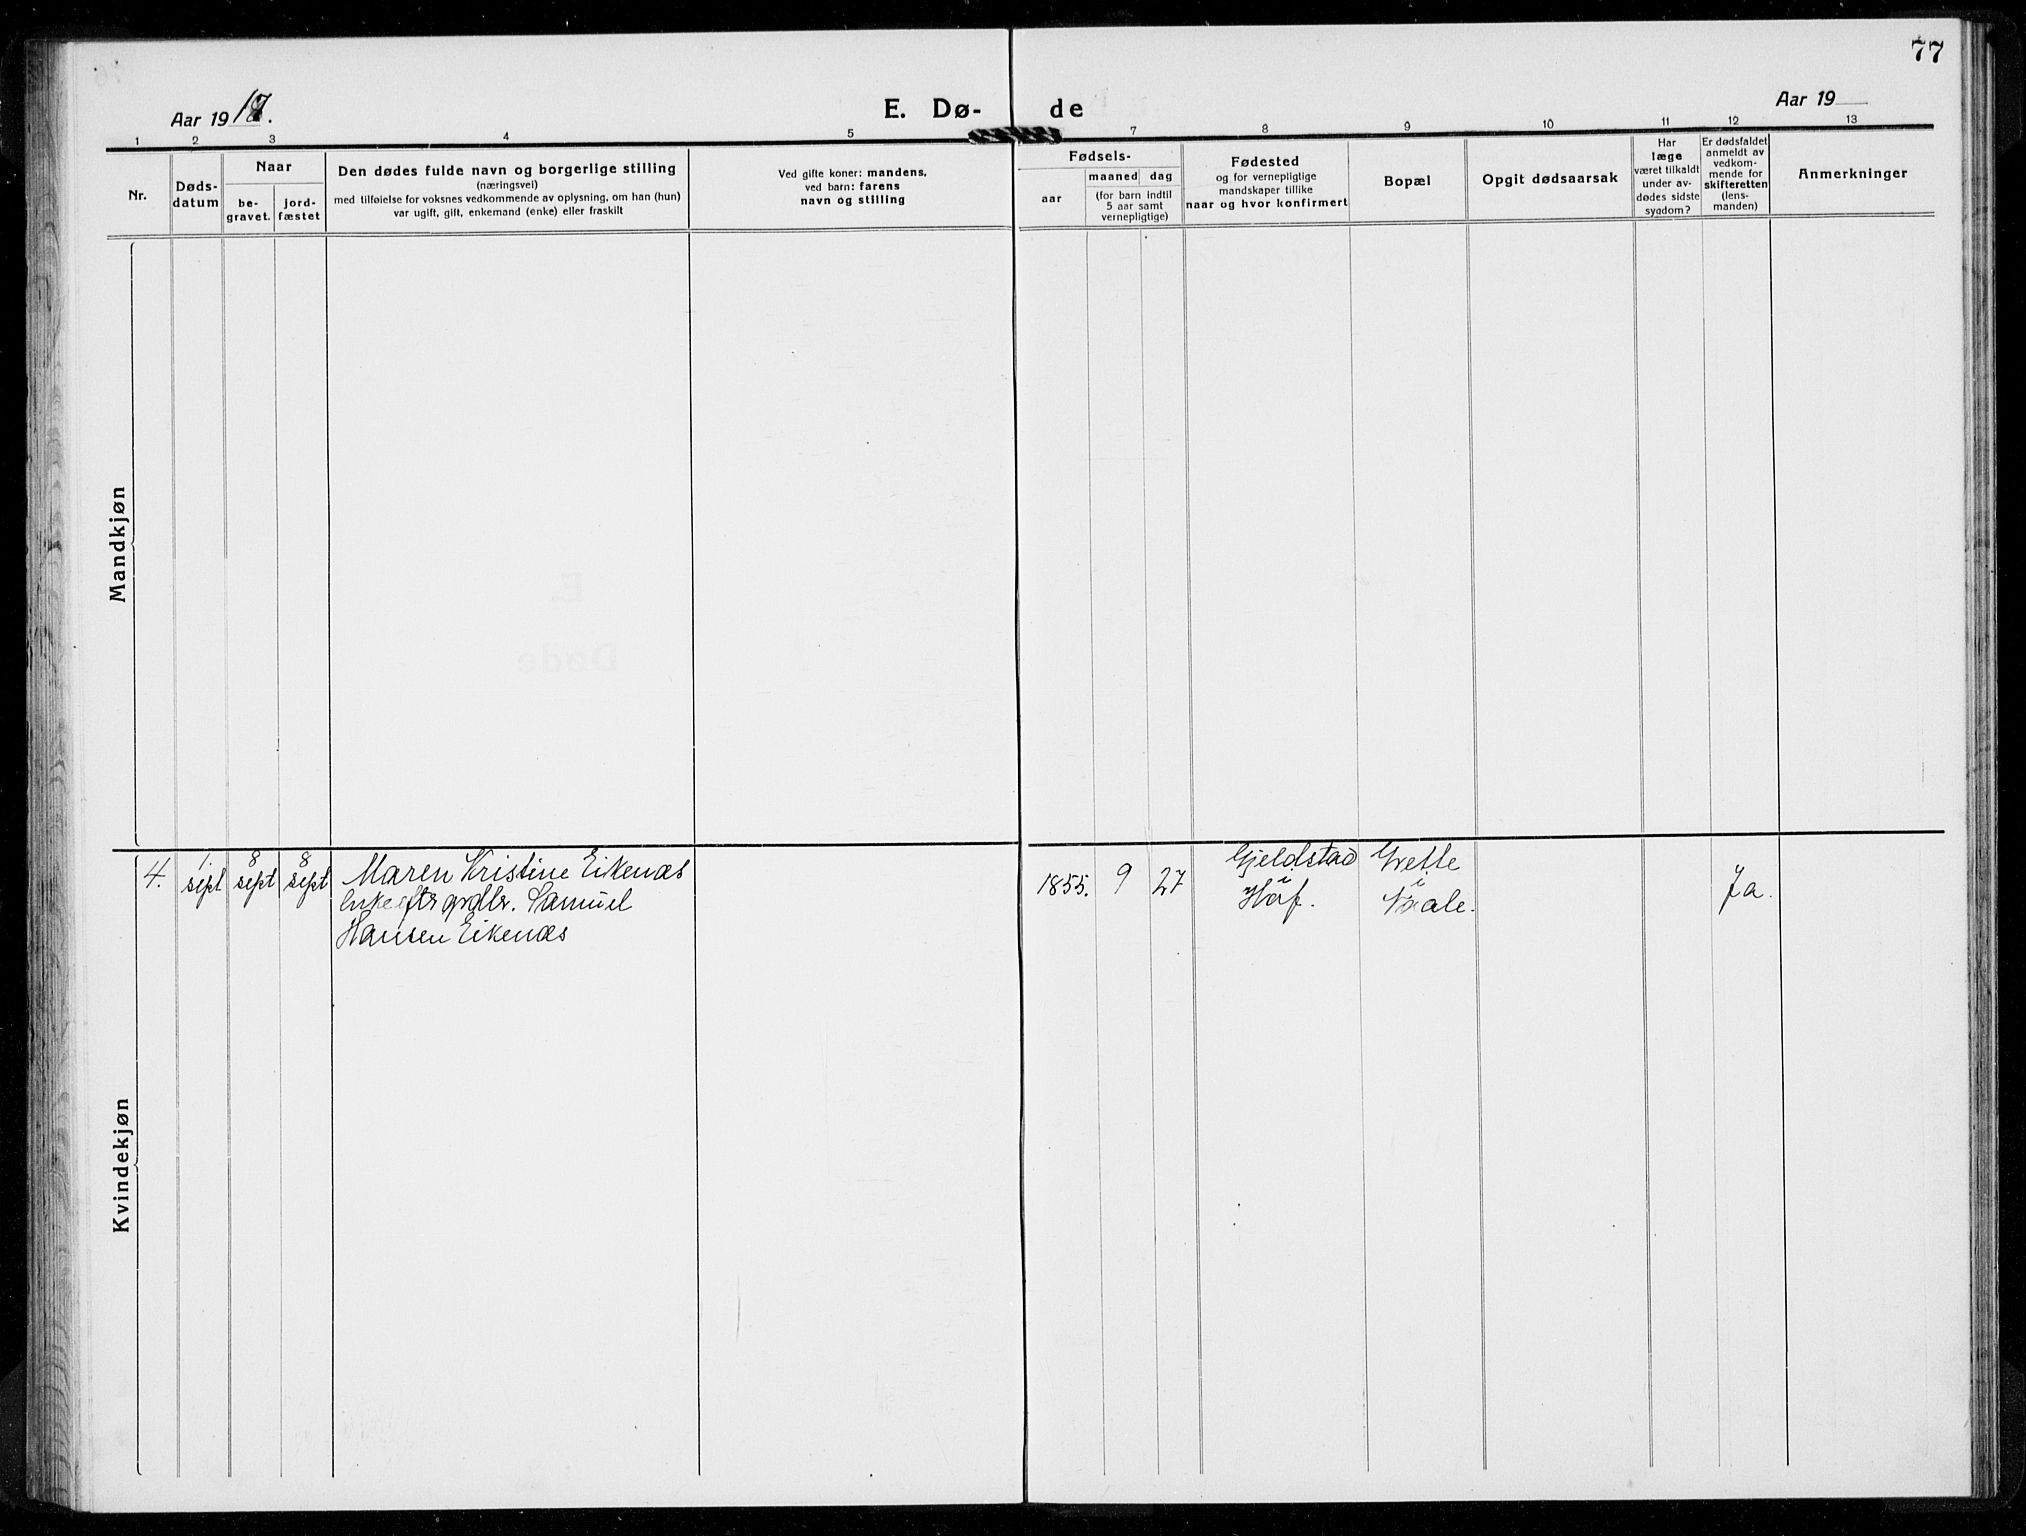 77
Aar 1917.
E. Dø-
de
Aar 19
1 2 3 4 5 7 8 9 10 11 12 13
Nr.
Døds-
datum
Naar
be-
gravet.
jord-
fæstet
Den dødes fulde navn og borgerlige stilling
(næringsvei)
med tilføielse for voksnes vedkommende av oplysning, om han (hun)
var ugift, gift, enkemand (enke) eller fraskilt
Ved gifte koner: mandens,
ved barn: farens
navn og stilling
Fødsels-
aar
maaned
dag
(for barn indtil
5 aar samt
vernepligtige)
Fødested
og for vernepligtige
mandskaper tillike
naar og hvor konfirmert
Bopæl
Opgit dødsaarsak
Har
læge
været tilkaldt
under av-
dødes sidste
sygdom?
Er dødsfaldet
anmeldt av
vedkom-
mende for
skifteretten
(lens-
manden)
Anmerkninger
Mandkjøn
Kvindekjøn
4.
1.
sept
8
sept
8
sept
Maren Kristine Eikenæs
enke efter grdbr. Samuel
Hansen Eikenæs
1855.
9
27
Gjeldstad
i
Hof.
Grette
i
Vaale.
Ja.